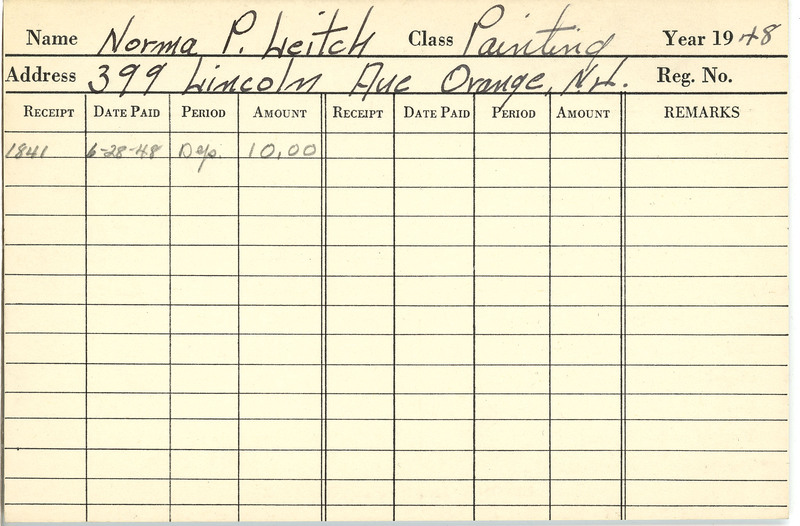 Name Norma P. Leitch Class Painting Year 1948
Address 399 Lincoln Ave Orange, N.J. Reg. No.
RECEIPT DATE PAID PERIOD AMOUNT RECEIPT DATE PAID PERIOD AMOUNT REMARKS
1841 6-28-48 Dep. 10.00